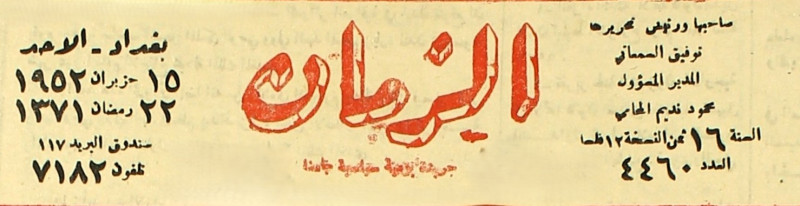 صاحبها ورئيس تحريرها
توفيق السمعاني
المدير المسؤول
محمود نديم المحامي
السنة ١٦ ثمن النسخة ١٢ فلسا
العدد ٤٤٦٠
الزمان
جريدة يومية سياسية جامعة
بغداد - الاحد
١٥ حزيران ١٩٥٢
٢٢ رمضان ١٣٧١
صندوق البريد ١١٧
تلفون ٧١٨٢